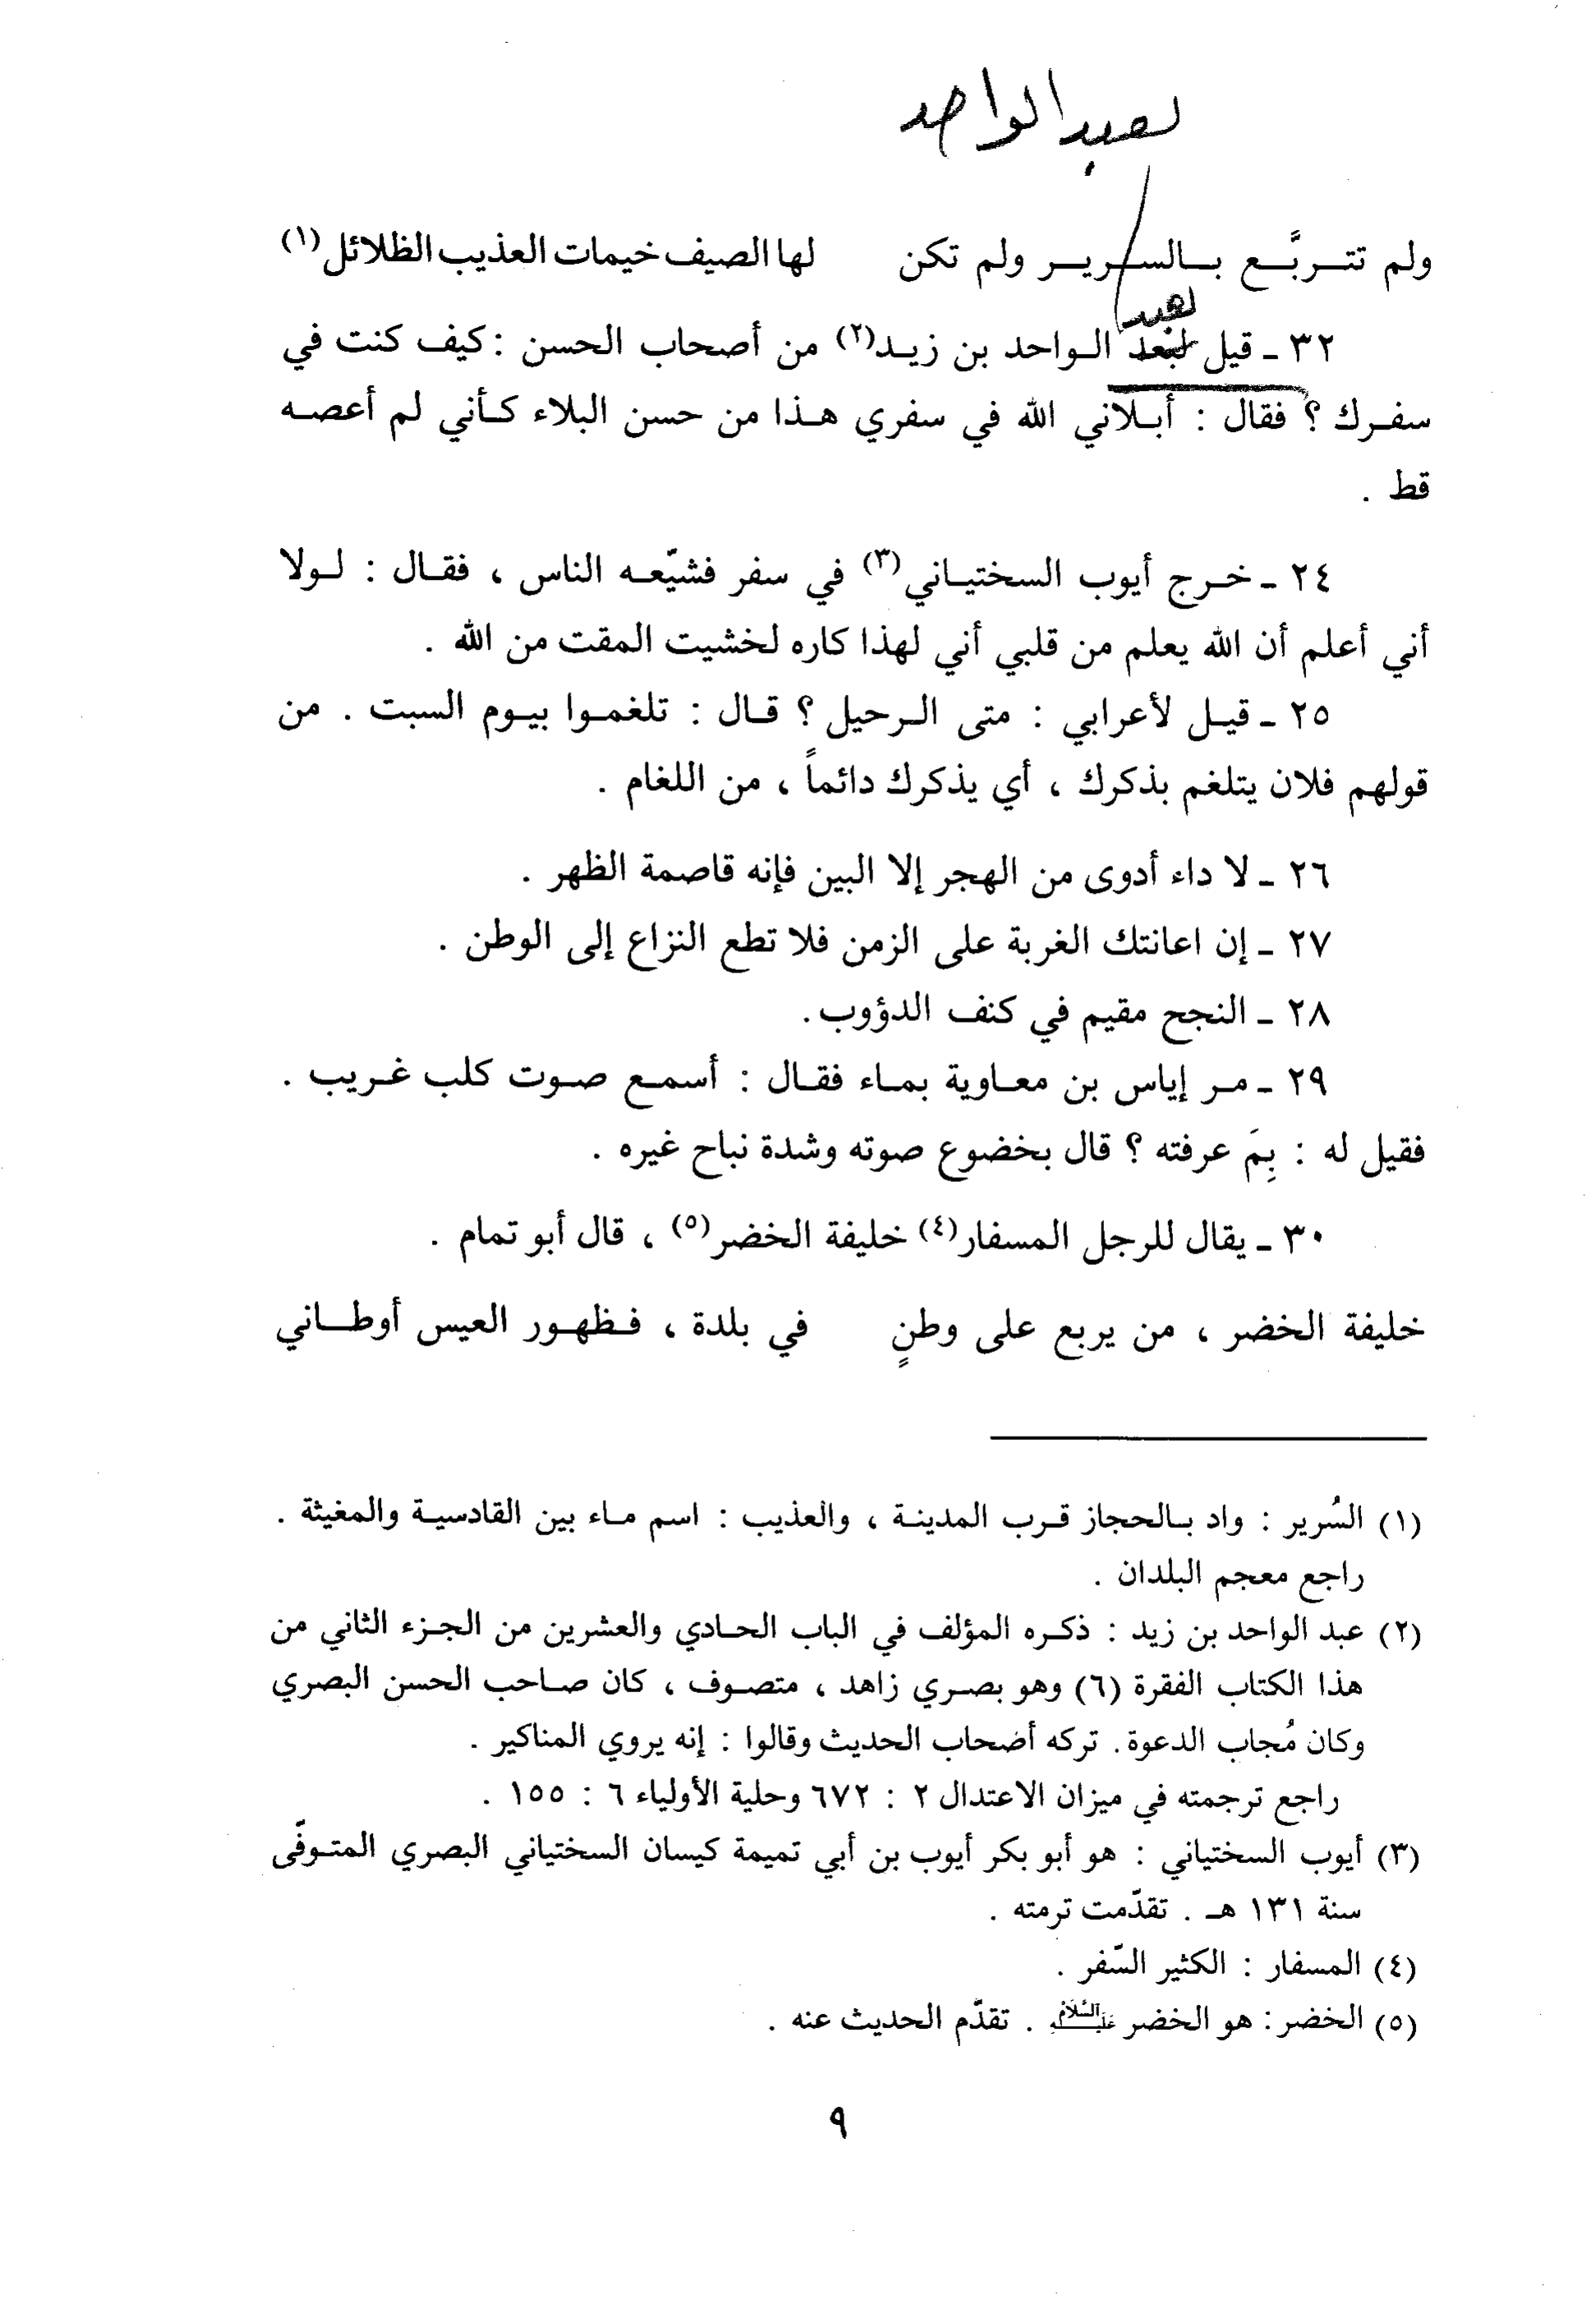 لعبد الواحد
ولم تتربَّع بالسرير ولم تكن لها الصيف خيمات العذيب الظلائل(١)
لعبد
٣٢ - قيل لبعد الواحد بن زيد(٢) من أصحاب الحسن : كيف كنت في
سفرك ؟ فقال : أبلاني الله في سفري هذا من حسن البلاء كأني لم أعصه
قط .
٢٤ - خرج أيوب السختياني(٣) في سفر فشيّعه الناس ، فقال : لولا
أني أعلم أن الله يعلم من قلبي أني لهذا كاره لخشيت المقت من الله .
٢٥ - قيل لأعرابي : متى الرحيل ؟ قال : تلغموا بيوم السبت . من
قولهم فلان يتلغم بذكرك ، أي يذكرك دائماً ، من اللغام .
٢٦ - لا داء أدوى من الهجر إلا البين فإنه قاصمة الظهر .
٢٧ - إن اعانتك الغربة على الزمن فلا تطع النزاع إلى الوطن .
٢٨ - النجح مقيم في كنف الدؤوب.
٢٩ - مر إياس بن معاوية بماء فقال : أسمع صوت كلب غريب .
فقيل له : بِمَ عرفته ؟ قال بخضوع صوته وشدة نباح غيره .
٣٠ - يقال للرجل المسفار(٤) خليفة الخضر(٥) ، قال أبو تمام .
خليفة الخضر ، من يربع على وطنٍ في بلدة ، فظهور العيس أوطاني
(١) السُرير : واد بالحجاز قرب المدينة ، والعذيب : اسم ماء بين القادسية والمغيثة .
راجع معجم البلدان .
(٢) عبد الواحد بن زيد : ذكره المؤلف في الباب الحادي والعشرين من الجزء الثاني من
هذا الكتاب الفقرة (٦) وهو بصري زاهد ، متصوف ، كان صاحب الحسن البصري
وكان مُجاب الدعوة. تركه أضحاب الحديث وقالوا : إنه يروي المناكير .
راجع ترجمته في ميزان الاعتدال ٢ : ٦٧٢ وحلية الأولياء ٦ : ١٥٥ .
(٣) أيوب السختياني : هو أبو بكر أيوب بن أبي تميمة كيسان السختياني البصري المتوفّى
سنة ١٣١ هـ . تقدّمت ترمته .
(٤) المسفار : الكثير السّفر .
(٥) الخضر : هو الخضر عليه السلام . تقدّم الحديث عنه .
٩